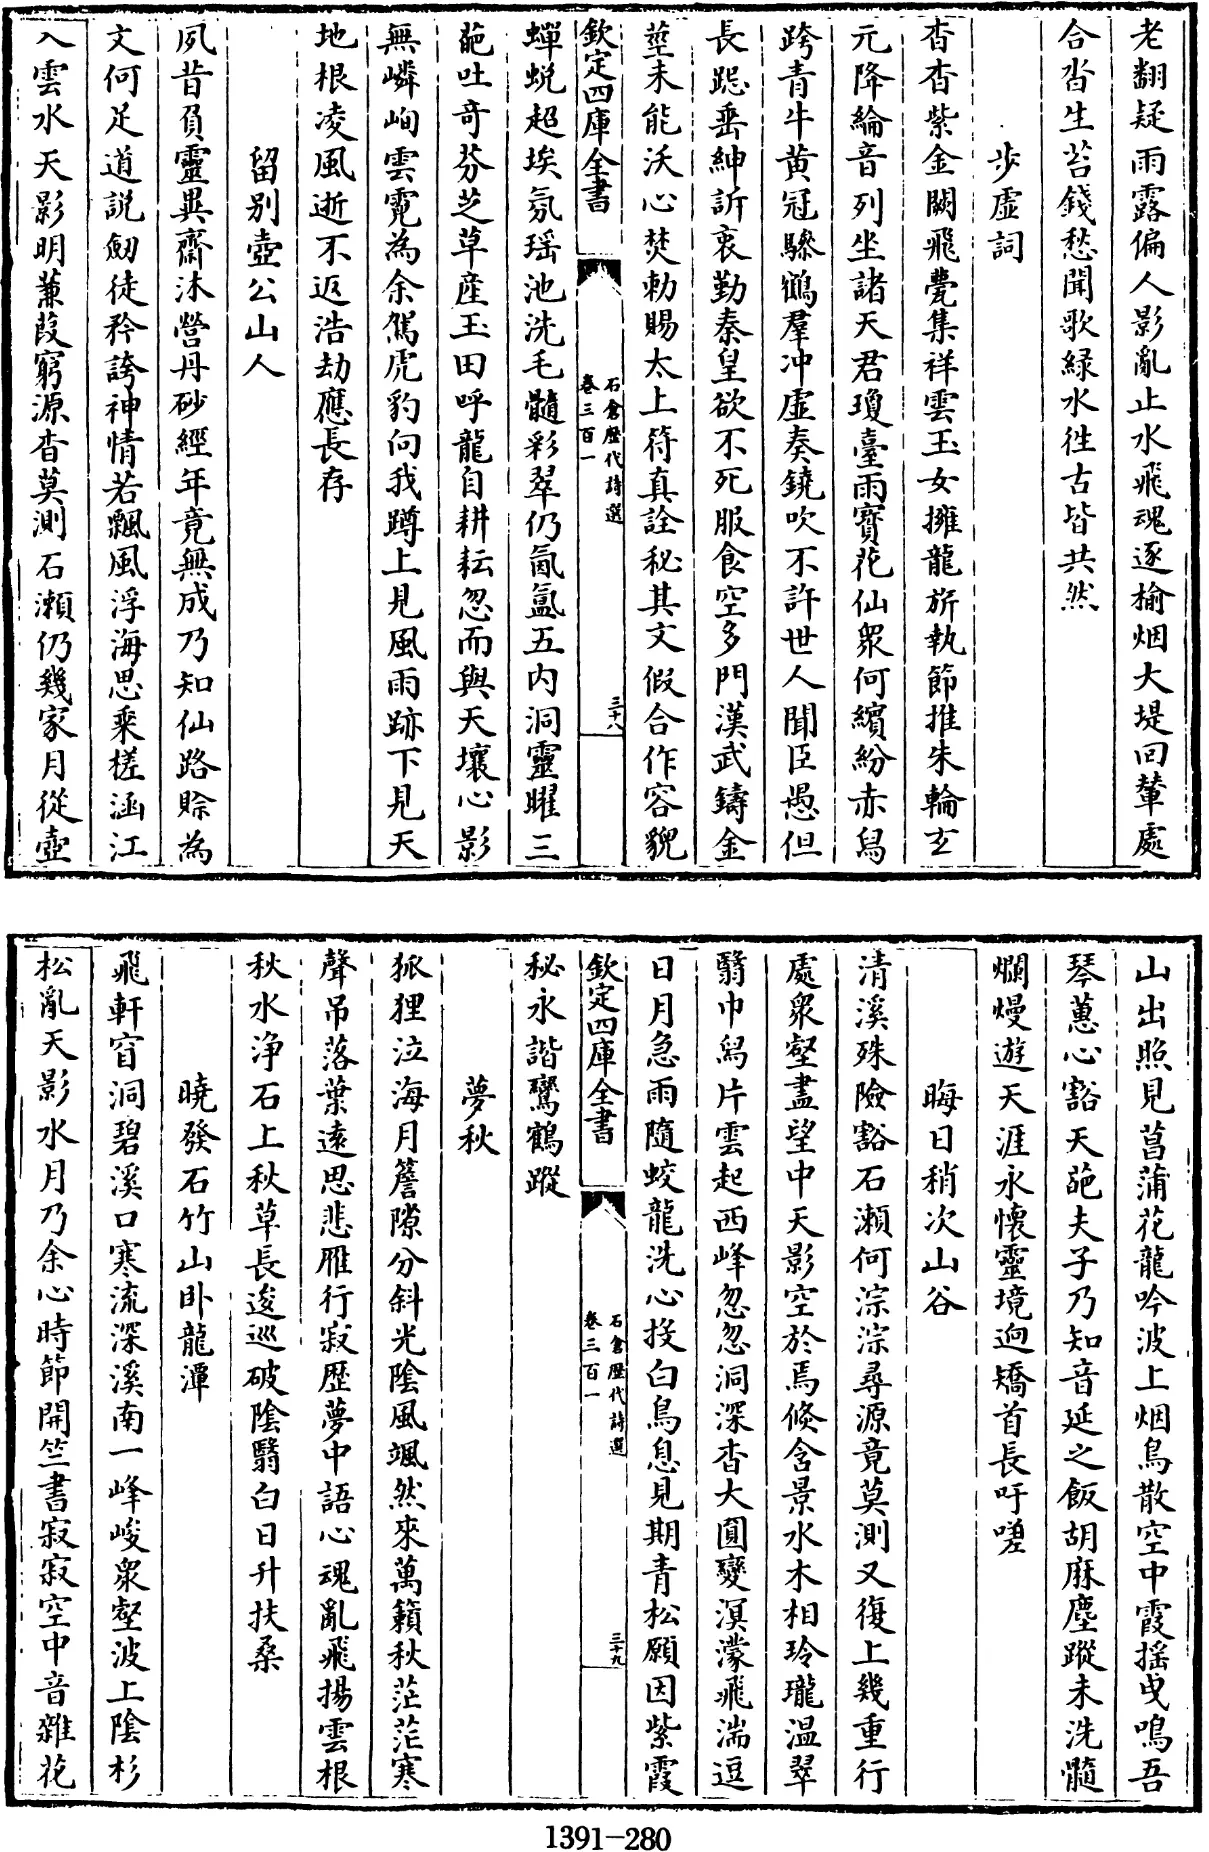 老翻疑雨露偏人影亂止水飛魂逐榆烟大堤回輦處
合沓生苔錢愁聞歌緑水徃古皆共然
步虛詞
杳杳紫金闕飛甍集祥雲玉女擁龍旂執節推朱輪玄
元降綸音列坐諸天君瓊臺雨寳花仙衆何繽紛赤舃
跨青牛黄冠驂鶴羣冲虛奏鐃吹不許世人聞臣愚但
長跽垂紳訴衷勤秦皇欲不死服食空多門漢武鑄金
莖未能沃心焚勅賜太上符真詮秘其文假合作容貌
欽定四庫全書
石倉歷代詩選
卷三百一
三十八
蟬蜕超埃氛瑶池洗毛髓彩翠仍氤氲五内洞靈曜三
葩吐奇芬芝草産玉田呼龍自耕耘忽而與天壤心影
無嶙峋雲霓為余駕虎豹向我蹲上見風雨跡下見天
地根凌風逝不返浩劫應長存
留别壺公山人
夙昔負靈異齋沐營丹砂經年竟無成乃知仙路賒為
文何足道説劒徒矜誇神情若飄風浮海思乘槎涵江
入雲水天影明蒹葭窮源杳莫測石瀬仍幾家月從壺
山出照見菖蒲花龍吟波上烟鳥散空中霞摇曵鳴吾
琴蕙心豁天葩夫子乃知音延之飯胡麻塵蹤未洗髓
爛熳遊天涯永懷靈境逈矯首長吁嗟
晦日稍次山谷
清溪殊險豁石瀬何淙淙尋源竟莫測又復上幾重行
處衆壑盡望中天影空於焉倐含景水木相玲瓏温翠
翳巾舄片雲起西峰忽忽洞深杳大圓變溟濛飛湍逗
日月急雨隨蛟龍洗心投白鳥息見期青松願因紫霞
欽定四庫全書
石倉歷代詩選
卷三百一
三十九
秘永諧鸞鶴蹤
夢秋
狐狸泣海月簷隙分斜光陰風颯然來萬籟秋茫茫寒
聲吊落葉遠思悲雁行寂歴夢中語心魂亂飛揚雲根
秋水浄石上秋草長逡巡破陰翳白日升扶桑
曉發石竹山卧龍潭
飛軒窅洞碧溪口寒流深溪南一峰峻衆壑波上陰杉
松亂天影水月乃余心時節開竺書寂寂空中音雜花
1391-280